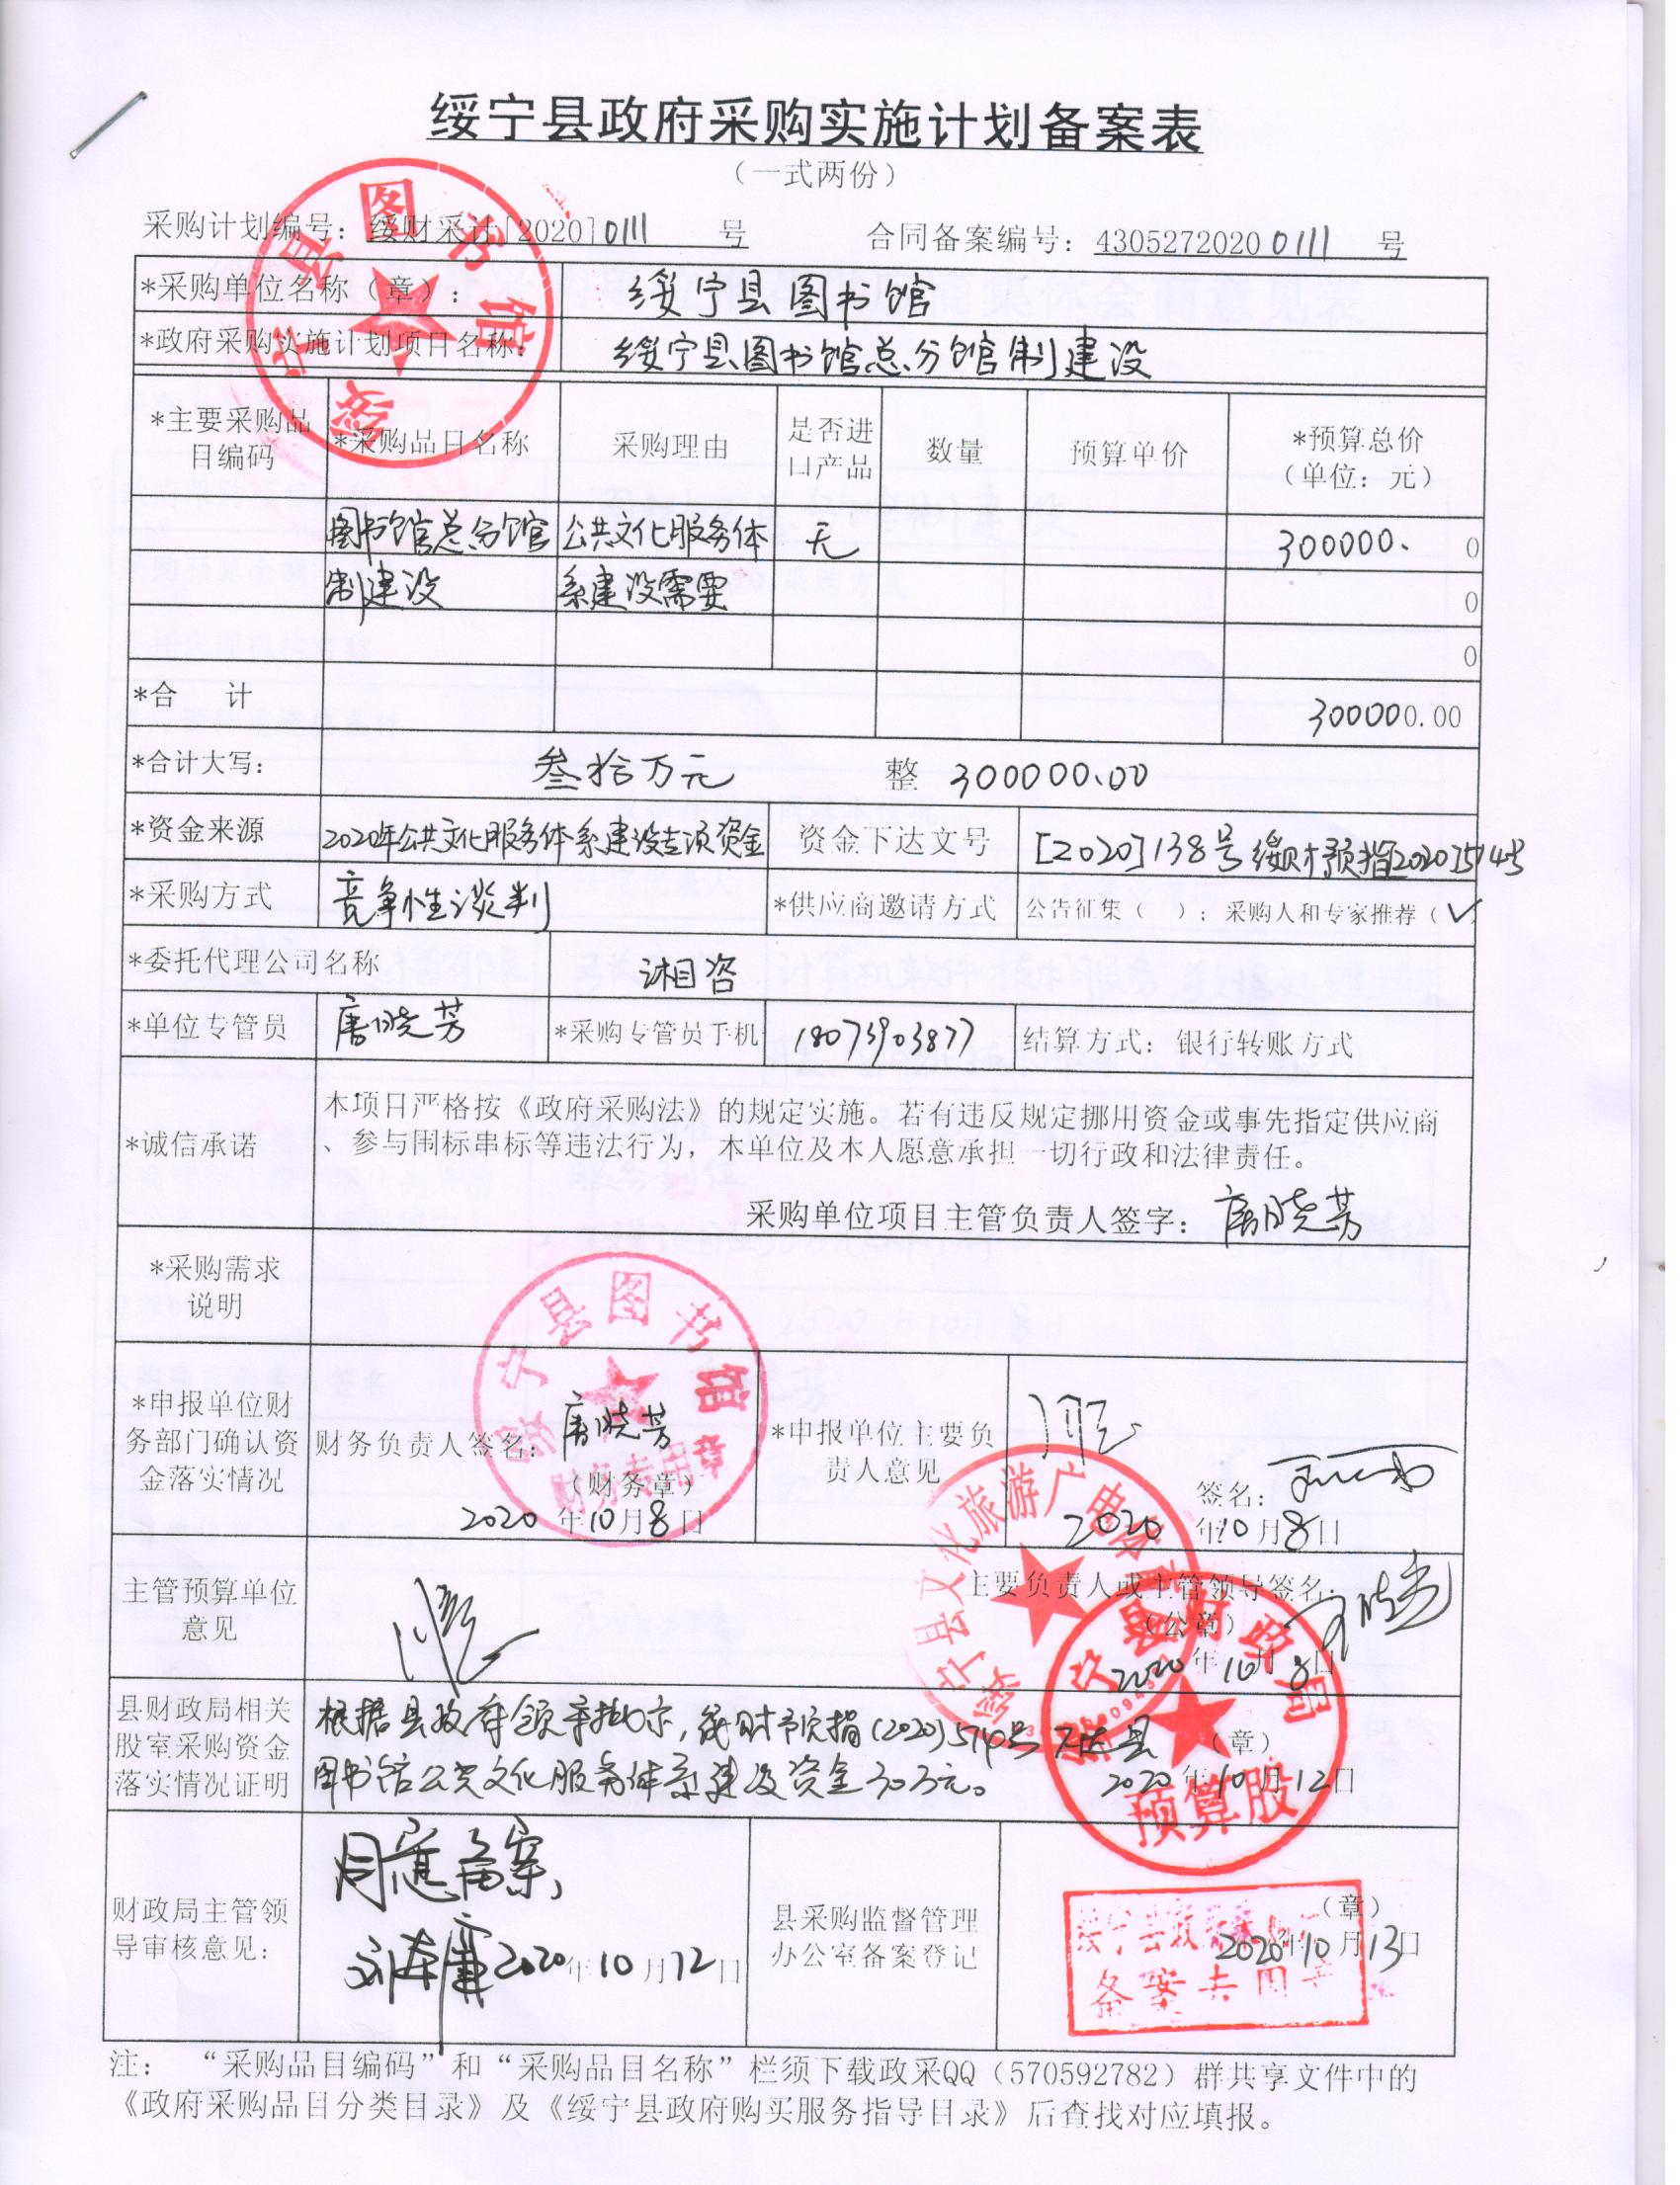 绥宁县政府采购实施计划备案表
（一式两份）
采购计划编号：绥财采计[2020]0111 号 合同备案编号：4305272020 0111 号
*采购单位名称（章）： 绥宁县图书馆
*政府采购实施计划项目名称： 绥宁县图书馆总分馆制建设
*主要采购品目编码 *采购品目名称 采购理由 是否进口产品 数量 预算单价 *预算总价（单位：元）
图书馆总分馆 公共文化服务体 无 300000. 0
制建设 系建设需要 0
0
*合 计 300000.00
*合计大写： 叁拾万元 整 300000.00
*资金来源 2020年公共文化服务体系建设专项资金 资金下达文号 [2020]138号 绥财预指[2020]514号
*采购方式 竞争性谈判 *供应商邀请方式 公告征集（ ）；采购人和专家推荐（✓
*委托代理公司名称 湘咨
*单位专管员 唐晓芳 *采购专管员手机 18073903877 结算方式：银行转账方式
*诚信承诺
本项目严格按《政府采购法》的规定实施。若有违反规定挪用资金或事先指定供应商
、参与围标串标等违法行为，本单位及本人愿意承担一切行政和法律责任。
采购单位项目主管负责人签字：唐晓芳
*采购需求
说明
*申报单位财
务部门确认资
金落实情况
财务负责人签名：唐晓芳
（财务章）
2020 年10月8日
*申报单位主要负
责人意见
签名：
2020 年10月8日
主管预算单位
意见
主要负责人或主管领导签名：
（公章）
2020 年 10月 8日
县财政局相关
股室采购资金
落实情况证明
根据县政府领导批示，绥财预指(2020)514号下达县
图书馆公共文化服务体系建设资金30万元。
（章）
2020年10月12日
财政局主管领
导审核意见：
同意备案，
2020年10月12日
县采购监督管理
办公室备案登记
（章）
2020年10月13日
绥宁县图书馆
绥宁县图书馆
财务专用章
绥宁县文化旅游广电体
绥宁县财政局
预算股
备案专用章
注： “采购品目编码”和“采购品目名称”栏须下载政采QQ（570592782）群共享文件中的
《政府采购品目分类目录》及《绥宁县政府购买服务指导目录》后查找对应填报。